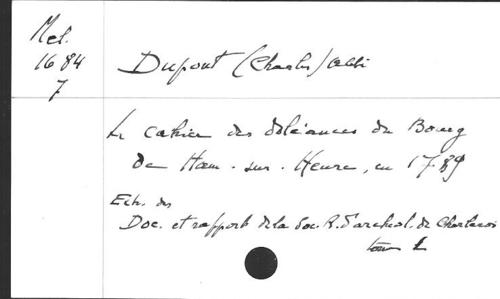 Mel.
1684
7
Dupont (Charles) abbé
Le cahier des doléances du Bourg
de Ham-sur-Heure, en 1789
Ext. des
Doc. et rapports de la Soc. R. d'archéol. de Charleroi
tome L